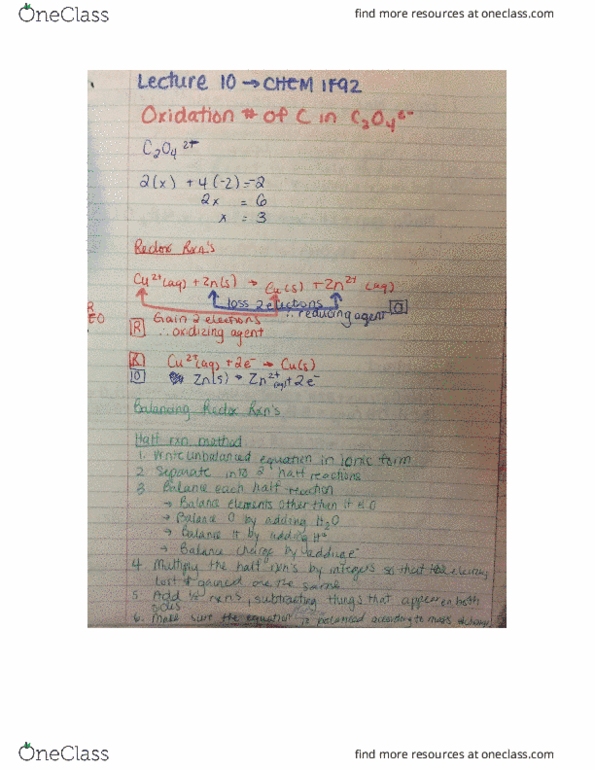 OneClass
find more resources at oneclass.com
Lecture 10 → CHEM 1F92
Oxidation # of C in C₂O₄
C₂O₄
2(x) + 4(-2) = -2
2x = 6
x = 3
Redox Rxn's
Cu²⁺(aq) + Zn(s) → Cu(s) + Zn²⁺ (aq)
loss 2 electrons
∴ reducing agent O
R
EO
Gain 2 electrons
R ∴ oxidizing agent
R Cu²⁺(aq) + 2e⁻ → Cu(s)
O Zn(s) → Zn²⁺(aq) + 2e⁻
Balancing Redox Rxn's
Half rxn method
1. Write unbalanced equation in ionic form
2. Separate into 2 half reactions
3. Balance each half reaction
→ Balance elements other then H & O
→ Balance O by adding H₂O
→ Balance H by adding H⁺
→ Balance charge by adding e⁻
4. Multiply the half rxn's by integers so that the
lost & gained are the same
5. Add ½ rxns, subtracting things that appear on both
sides
6. Make sure the equation is balanced according to mass & charge
OneClass
find more resources at oneclass.com